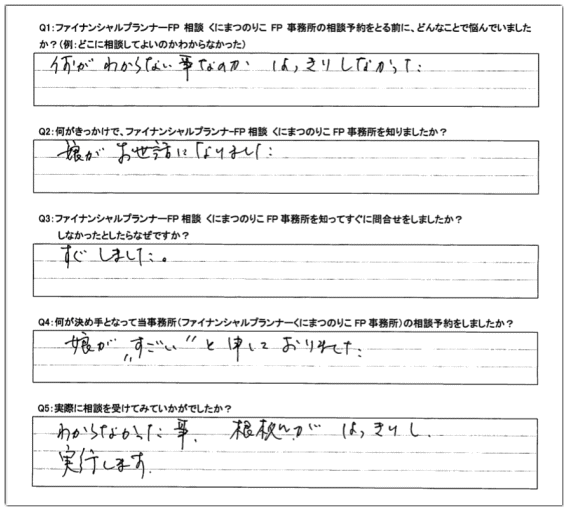 Q1:ファイナンシャルプランナーFP 相談 くにまつのりこ FP 事務所の相談予約をとる前に、どんなことで悩んでいました
か?(例:どこに相談してよいのかわからなかった)
何がわからない事なのか はっきりしなかった
Q2:何がきっかけで、ファイナンシャルプランナーFP 相談 くにまつのりこ FP 事務所を知りましたか?
娘がお世話になりました
Q3:ファイナンシャルプランナーFP 相談 くにまつのりこ FP 事務所を知ってすぐに問合せをしましたか?
しなかったとしたらなぜですか?
すぐしました。
Q4:何が決め手となって当事務所(ファイナンシャルプランナーくにまつのりこ FP 事務所)の相談予約をしましたか?
娘が"すごい"と申しておりました
Q5:実際に相談を受けてみていかがでしたか?
わからなかった事、根秋んがはっきりし、
実行します。